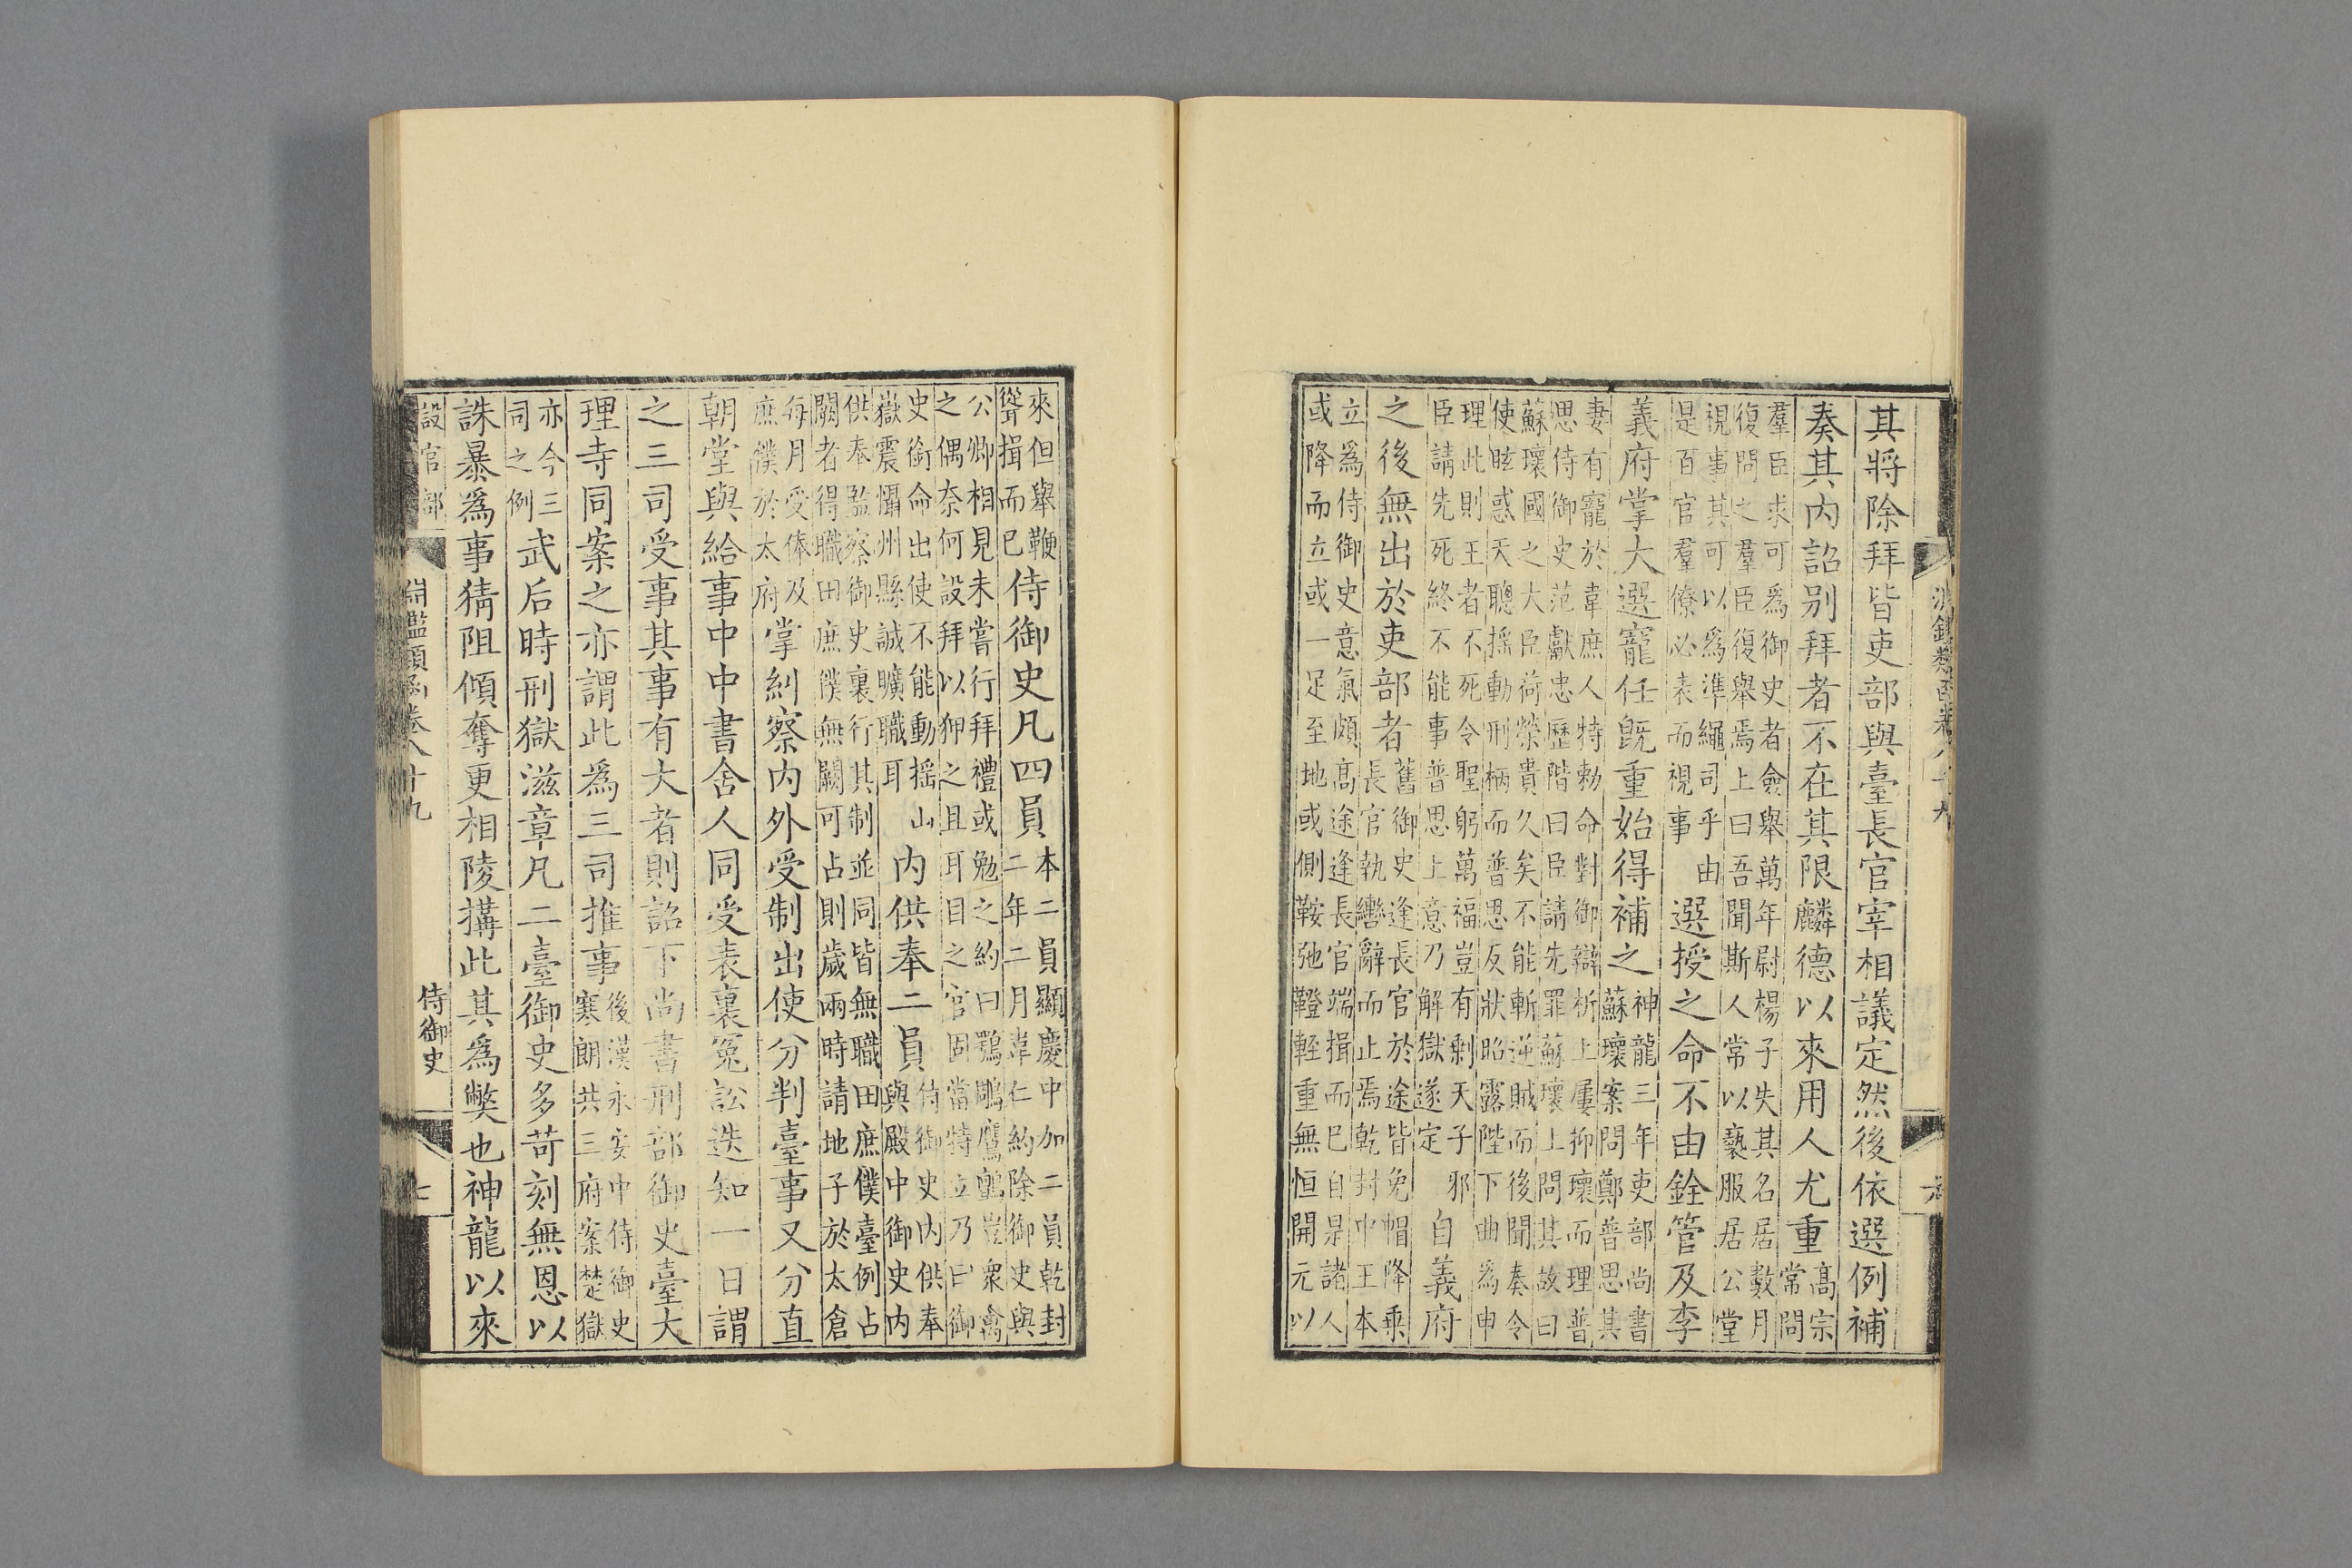 淵鑑類函卷八十九
六
其將除拜皆吏部與臺長官宰相議定然後依選例補
奏其内詔别拜者不在其限麟德以來用人尤重
高宗
常問
羣臣求可爲御史者僉舉萬年尉楊子失其名居數月
復問之羣臣復舉焉上曰吾聞斯人常以褻服居公堂
視事其可以爲準繩司乎由
是百官羣僚必表而視事
選授之命不由銓管及李
義府掌大選寵任既重始得補之
神龍三年吏部尚書
蘇壞案問鄭普思其
妻有寵於韋庶人特勅命對御辯析上屢抑壞而理普
思侍御史范獻忠歷階曰臣請先罪蘇壞上問其故曰
蘇壞國之大臣荷榮貴久矣不能斬逆賊而後聞奏令
使眩惑天聽搖動刑柄而普思反狀昭露陛下曲爲申
理此則王者不死令聖躬萬福豈有剩天子邪
臣請先死終不能事普思上意乃解獄遂定
自義府
之後無出於吏部者
舊御史逢長官於途皆免帽降乗
長官執轡辭而止焉乾封中王本
立爲侍御史意氣頗高途逢長官端揖而已自是諸人
或降而立或一足至地或側鞍弛鞚輕重無恒開元以
來但舉鞭
聳揖而已
侍御史凡四員
本二員顯慶中加二員乾封
二年二月韋仁約除御史與
公卿相見未嘗行拜禮或勉之約曰鶚鵰鷹鸇豈衆禽
之偶奈何設拜以狎之且耳目之官固當特立乃曰御
史銜命出使不能動搖山
嶽震懾州縣誠曠職耳
内供奉二員
侍御史内供奉
與殿中御史内
供奉監察御史裏行其制並同皆無職田庶僕臺例占
闕者得職田庶僕無闕可占則歲兩時請地子於太倉
每月受俸及
庶僕於太府
掌糾察内外受制出使分判臺事又分直
朝堂與給事中中書舍人同受表裏冤訟迭知一日謂
之三司受事其事有大者則詔下尚書刑部御史臺大
理寺同案之亦謂此爲三司推事
後漢永安中侍御史
寒朗共三府案楚獄
亦今三
司之例
武后時刑獄滋章凡二臺御史多苛刻無恩以
誅暴爲事猜阻傾奪更相陵搆此其爲弊也神龍以來
設官部
淵鑑類函卷八十九
侍御史
七